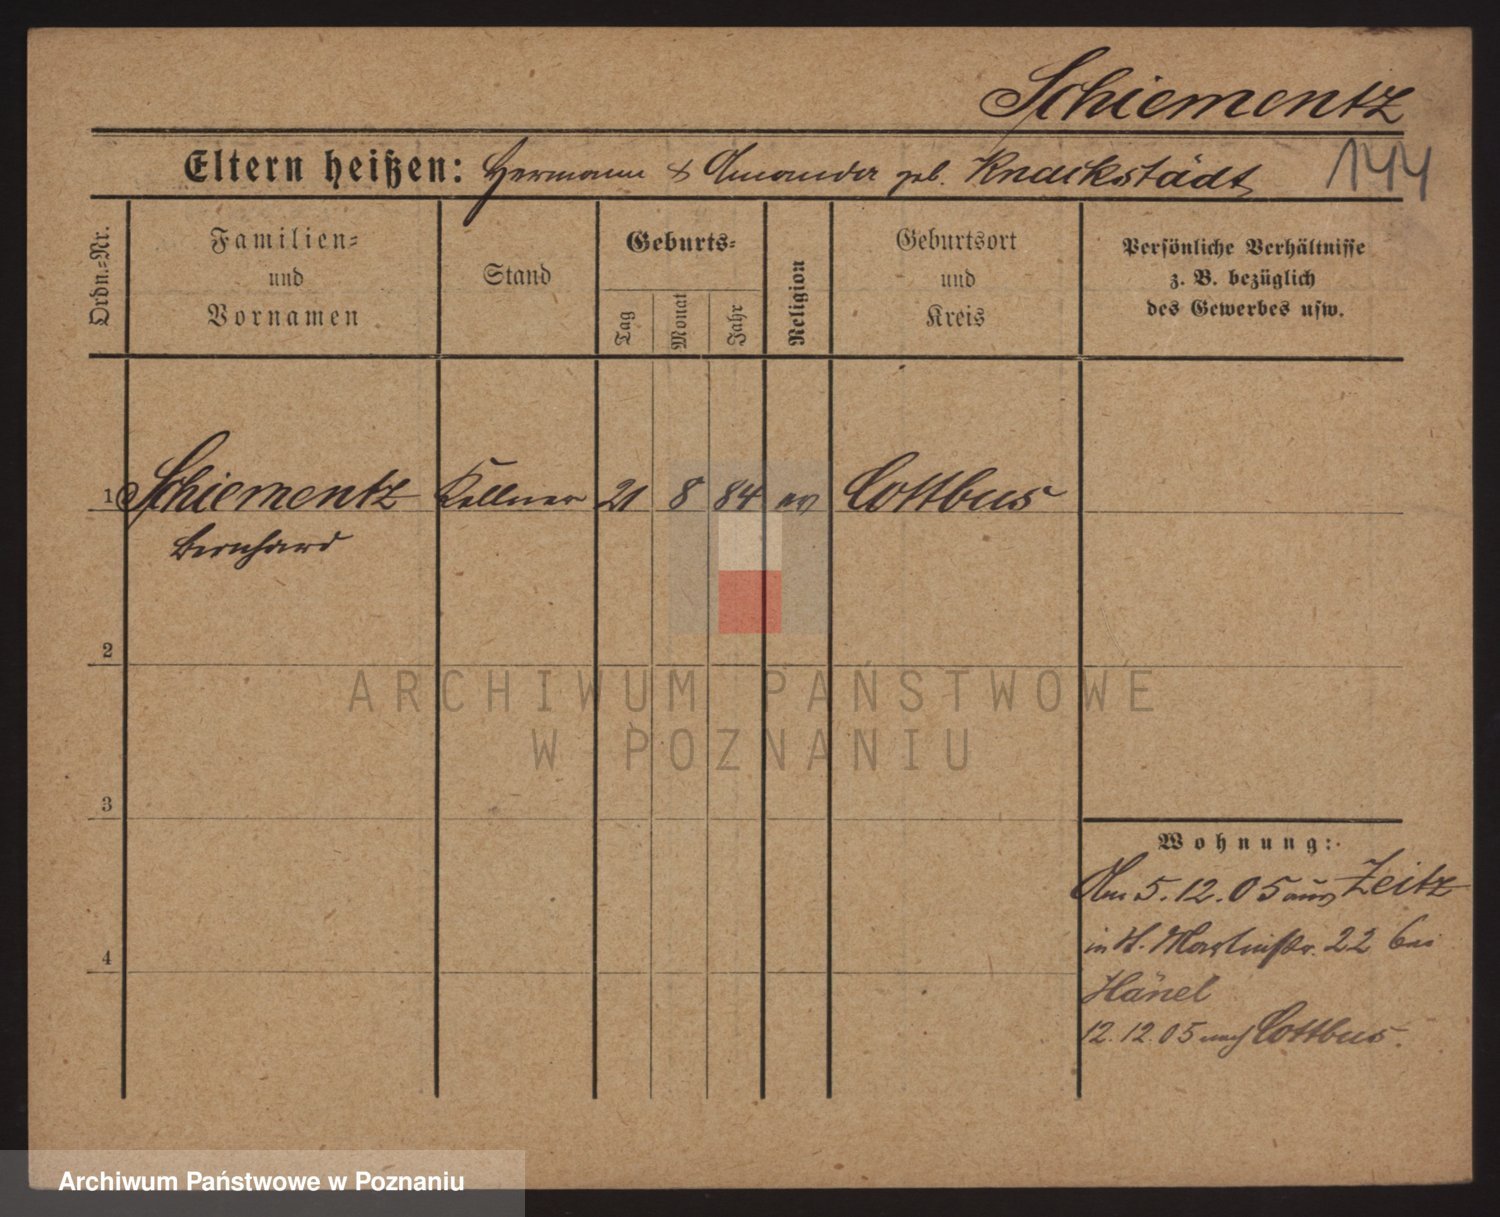 Schiementz
Eltern heißen: Hermann & Amanda geb. Knackstädt
144
Ordn.-Nr.
Familien-
und
Vornamen
Stand
Geburts-
Tag
Monat
Jahr
Religion
Geburtsort
und
Kreis
Persönliche Verhältnisse
z. B. bezüglich
des Gewerbes usw.
1 Schiementz Kellner 21 8 84 ev Cottbus
Bernhard
2
ARCHIWUM PAŃSTWOWE
W POZNANIU
3
Wohnung:
Am 5.12.05 aus Zeitz
in St. Martinstr. 22 bei
4
Hänel
12.12.05 nach Cottbus.
Archiwum Państwowe w Poznaniu